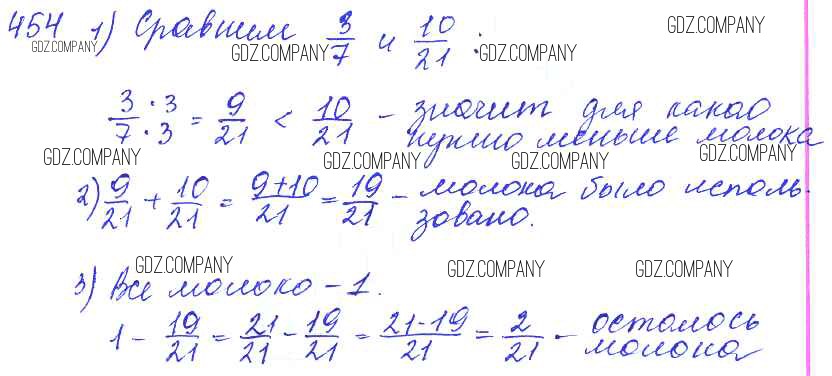 454 1) Сравним 3/7 и 10/21:
GDZ.COMPANY GDZ.COMPANY GDZ.COMPANY GDZ.COMPANY
3·3/7·3 = 9/21 < 10/21 – значит для какао
нужно меньше молока
GDZ.COMPANY GDZ.COMPANY GDZ.COMPANY GDZ.COMPANY
2) 9/21 + 10/21 = 9+10/21 = 19/21 – молока было исполь-
зовано.
GDZ.COMPANY GDZ.COMPANY GDZ.COMPANY
3) Все молоко – 1.
1 - 19/21 = 21/21 - 19/21 = 21-19/21 = 2/21 – осталось
молока